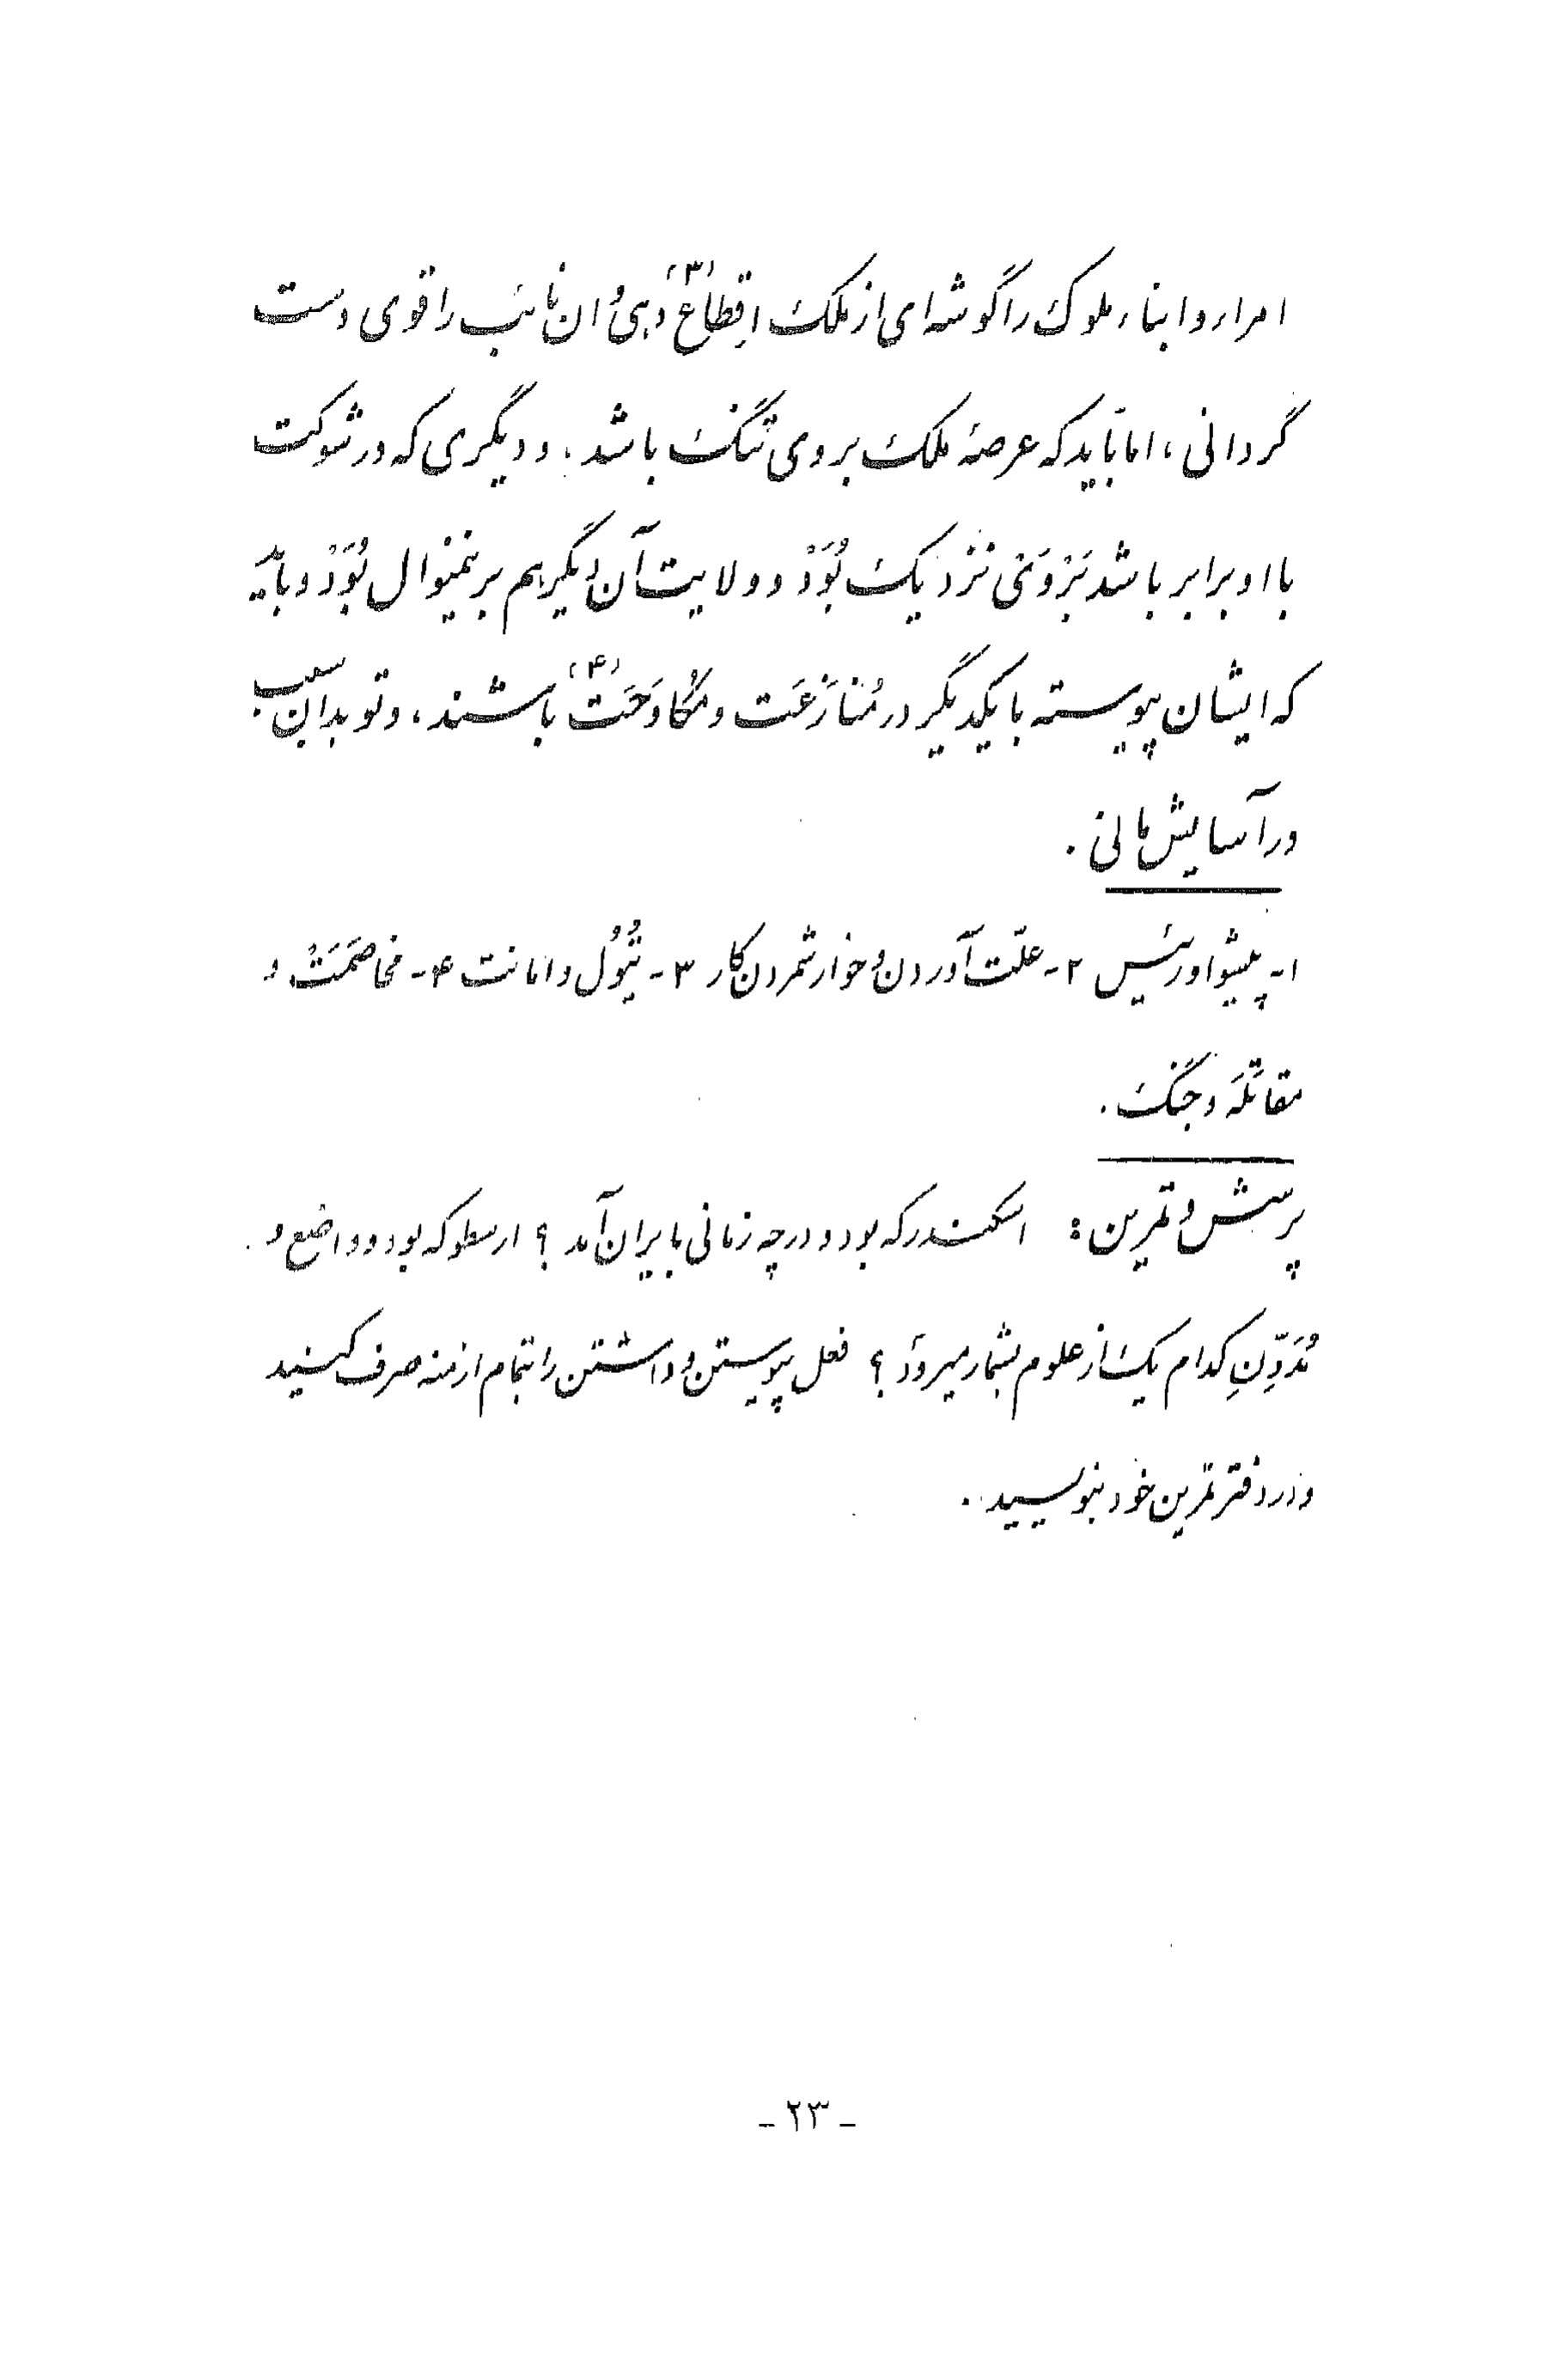 امراء و ابناء ملوک را گوشه‌ای از ملک اِقطاع (۳) دهی و آن نائب را قوی دست
گردانی ، اما باید که عرصهٔ ملک بر وی تنگ باشد . و دیگری که در شوکت
با او برابر باشد بَرْ وَیْ نزدیک بُوَدْ و ولایت آن دیگر هم بر ینمنوال بُوَدْ و باید
که ایشان پیوسته با یکدیگر در مُنازَعَت و مُکاوَحَتْ (۴) باشند ، و تو بدان سبب
در آسایش مانی .
۱- پیشوا و رئیس ۲- علّت آوردن و خوار شمردن کار ۳- تُیُول و امانت ۴- مخاصَمَتْ و
مقاتَلَه و جنگ .
پرسش و تمرین : اسکندر که بود و در چه زمانی بایران آمد ؟ ارسطو که بود و واضع و
مُدَوِّنِ کدام یک از علوم بشمار میرود ؟ فعل پیوستن و داشتن را بتمام ازمنه صرف کنید
و در دفتر تمرین خود بنویسید .
- ۲۳ -